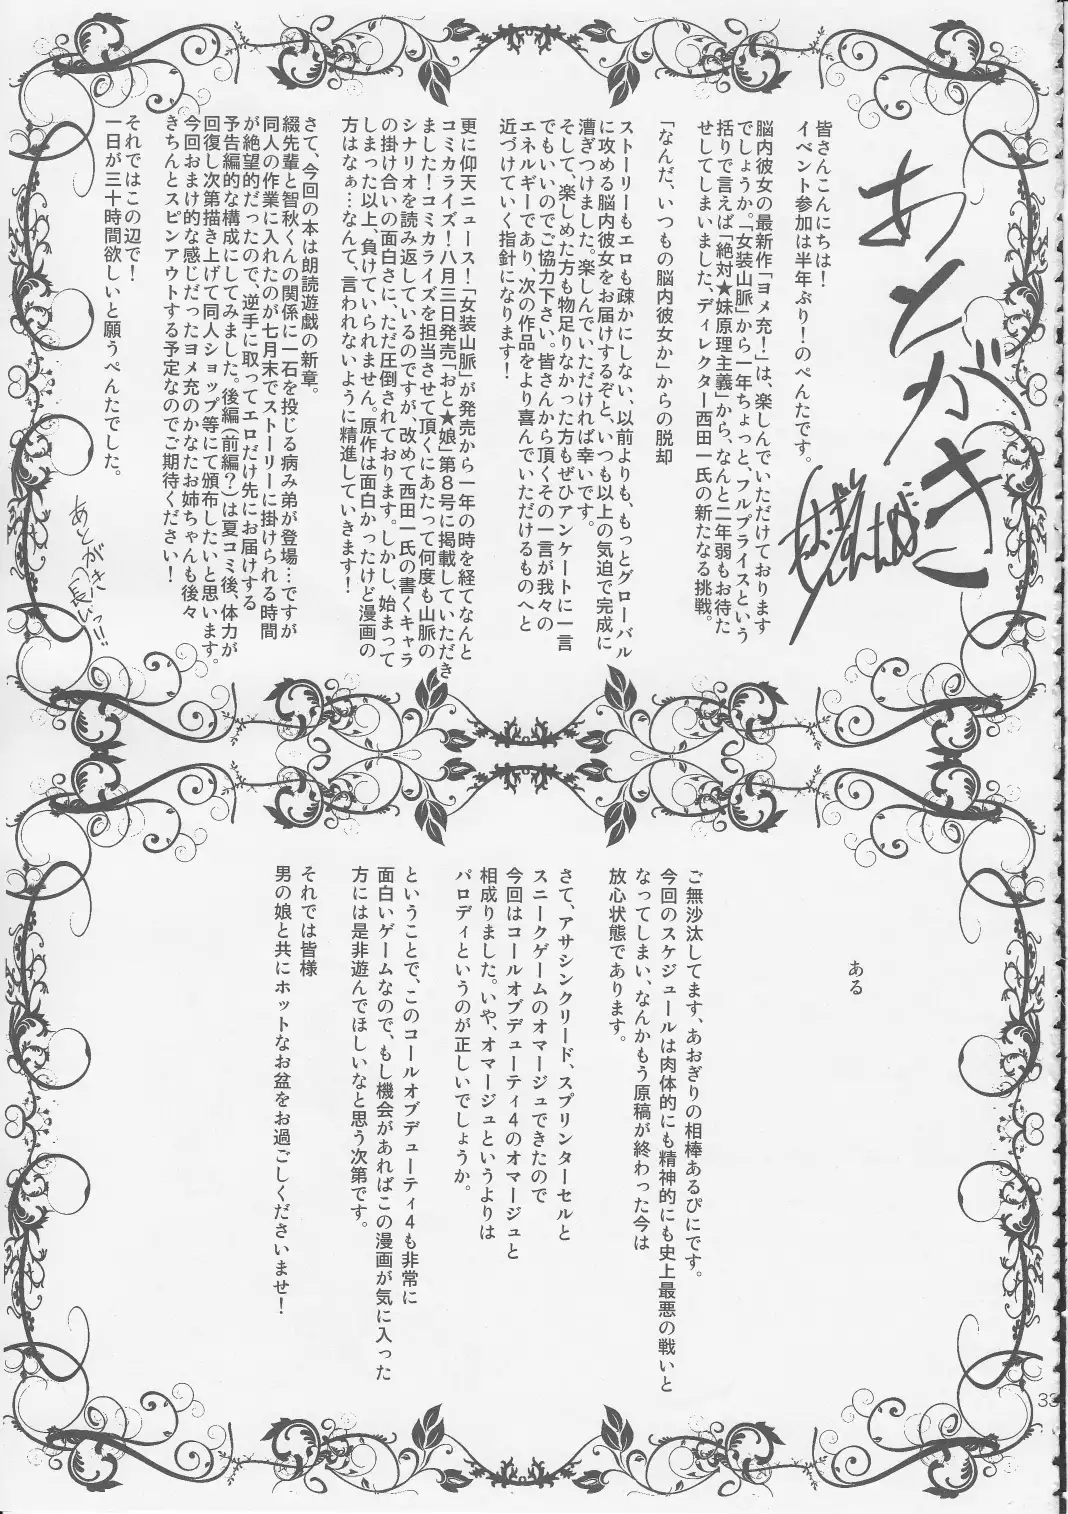 あとがき
皆さんこんにちは！
イベント参加は半年ぶり！のぺんたです。
脳内彼女の最新作「ヨメ充！」は、楽しんでいただけております
でしょうか。「女装山脈」から一年ちょっと、フルプライスという
括りで言えば「絶対★妹原理主義」から、なんと二年弱もお待た
せしてしまいました、ディレクター西田一氏の新たなる挑戦。
「なんだ、いつもの脳内彼女か」からの脱却
ストーリーもエロも疎かにしない、以前よりも、もっとグローバル
に攻める脳内彼女をお届けするぞと、いつも以上の気迫で完成に
漕ぎつけました。楽しんでいただければ幸いです。
そして、楽しめた方も物足りなかった方もぜひアンケートに一言
でもいいのでご協力下さい。皆さんから頂くその一言が我々の
エネルギーであり、次の作品をより喜んでいただけるものへと
近づけていく指針になります！
更に仰天ニュース！「女装山脈」が発売から一年の時を経てなんと
コミカライズ！八月三日発売「おと★娘」第８号に掲載していただき
ました！コミカライズを担当させて頂くにあたって何度も山脈の
シナリオを読み返しているのですが、改めて西田一氏の書くキャラ
の掛け合いの面白さに、ただ圧倒されております。しかし、始まって
しまった以上、負けていられません。原作は面白かったけど漫画の
方はなぁ…なんて、言われないように精進していきます！
さて、今回の本は朗読遊戯の新章。
綴先輩と智秋くんの関係に一石を投じる病み弟が登場…ですが
同人の作業に入れたのが七月末でストーリーに掛けられる時間
が絶望的だったので、逆手に取ってエロだけ先にお届けする
予告編的な構成にしてみました。後編（前編？）は夏コミ後、体力が
回復し次第描き上げて同人ショップ等にて頒布したいと思います。
今回おまけ的な感じだったヨメ充のかなたお姉ちゃんも後々
きちんとスピンアウトする予定なのでご期待ください！
それではこの辺で！
一日が三十時間欲しいと願うぺんたでした。
あとがき
長いっ!!
ある
ご無沙汰してます、あおぎりの相棒あるぴにです。
今回のスケジュールは肉体的にも精神的にも史上最悪の戦いと
なってしまい、なんかもう原稿が終わった今は
放心状態であります。
さて、アサシンクリード、スプリンターセルと
スニークゲームのオマージュできたので
今回はコールオブデューティ４のオマージュと
相成りました。いや、オマージュというよりは
パロディというのが正しいでしょうか。
ということで、このコールオブデューティ４も非常に
面白いゲームなので、もし機会があればこの漫画が気に入った
方には是非遊んでほしいなと思う次第です。
それでは皆様
男の娘と共にホットなお盆をお過ごしくださいませ！
33